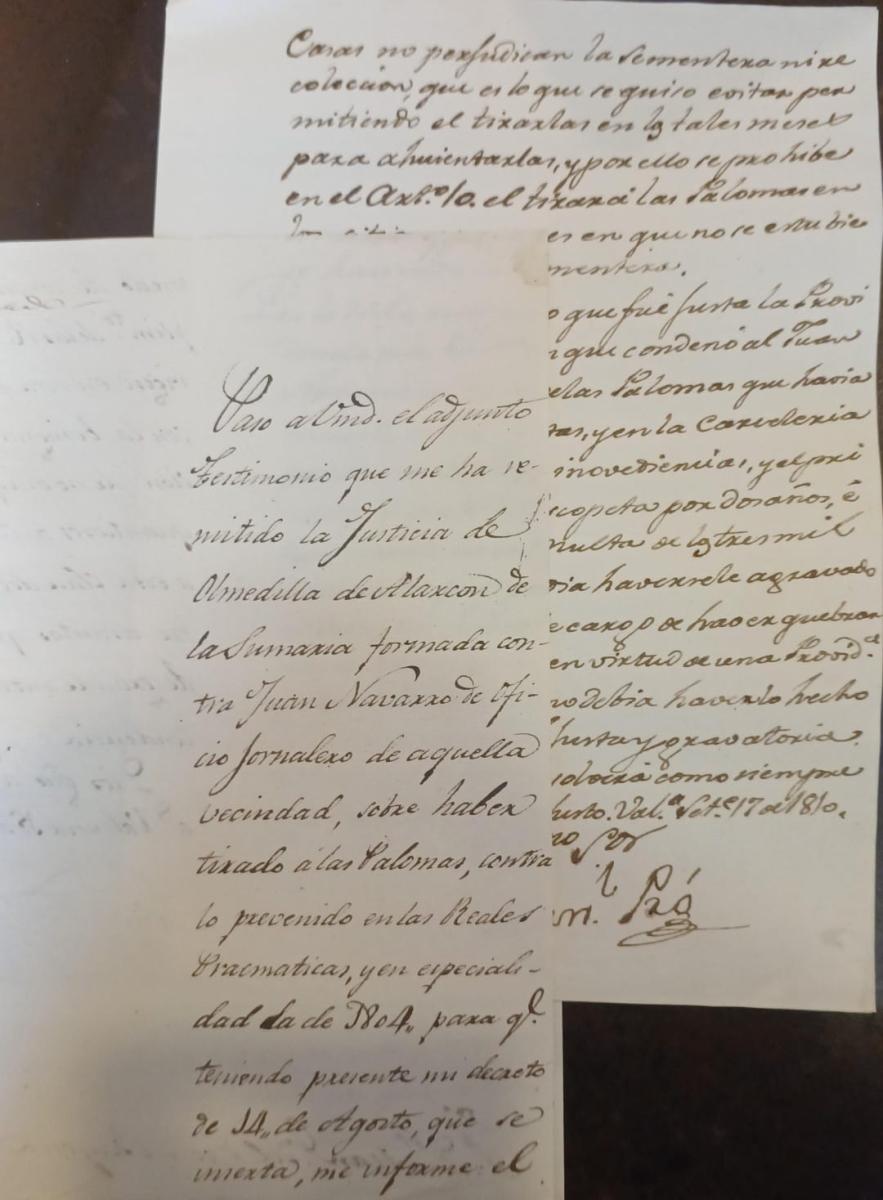 Casas no perjudican la sementera ni re
coleccion, que es lo que se quiso evitar per
mitiendo el tirarlas en los tales meses
para ahuientarlas, y por ello se prohibe
en el Art.º 10. el tirar á las Palomas en
es en que no se estubie
mentera.
o que fué justa la Provi
que condenó al Juan
las Palomas que havia
tas, y en la Carceleria
inovediencias, y el pri
copeta por dos años, é
multa de los tres mil
haversele agravado
cargo de hacer quebran
en virtud de una Provid.ª
debia haverlo hecho
justa y gravatoria.
como siempre
justo. Val.ª Set.e 17 de 1810.
Sor
Paso a Vmd. el adjunto
testimonio que me ha re-
mitido la Justicia de
Olmedilla de Alarcon de
la Sumaria formada con-
tra Juan Navarro de ofi-
cio Jornalero de aquella
vecindad, sobre haber
tirado á las Palomas, contra
lo prevenido en las Reales
Pracmaticas, y en especiali-
dad la de 1804,, para q.e
teniendo presente mi decreto
de 14,, de Agosto, que se
inserta, me informe el